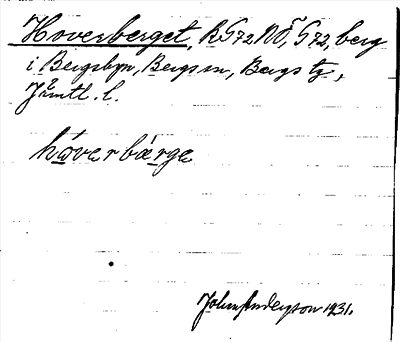 Hoverberget, BG72NÖ, G73, berg
i Bergsbyn, Bergs sn, Bergs tg,
Jämtl. l.
håverbærge
John Anderson 1931.